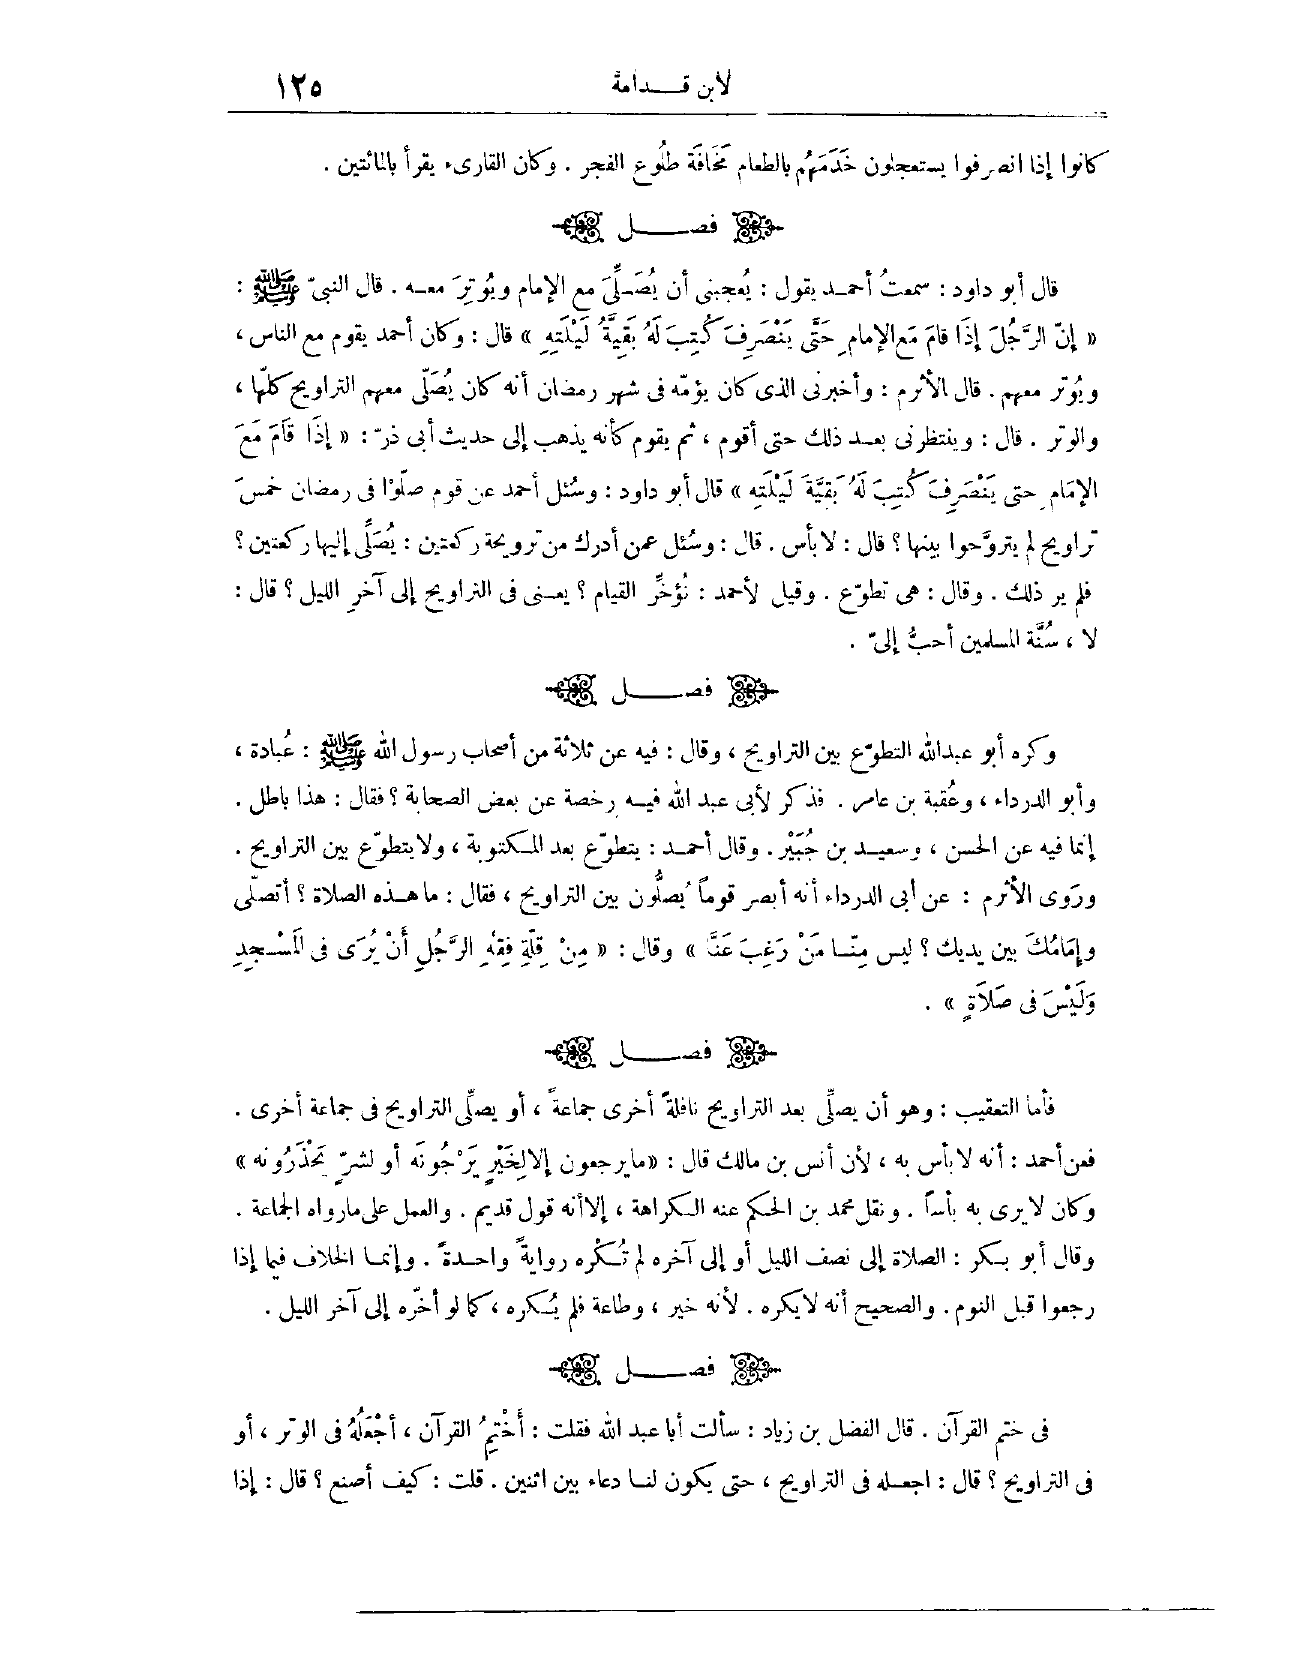 لابن قدامة ١٢٥
كانوا إذا انصرفوا يستعجلون خَدَمَهُم بالطعام مَخَافَة طلُوع الفجر . وكان القارىء يقرأ بالمائتين .
فصل
قال أبو داود : سمعتُ أحمد يقول : يُعجبنى أن يُصَلِّىَ مع الإمام ويُوتِرَ معه . قال النبىّ ﷺ :
« إنّ الرَّجُلَ إذَا قامَ مَع الإمامِ حَتَّى يَنْصَرِفَ كُتِبَ لَهُ بَقِيَّةُ لَيْلَتِهِ » قال : وكان أحمد يقوم مع الناس ،
ويُوتر معهم . قال الأثرم : وأخبرنى الذى كان يؤمّه فى شهر رمضان أنه كان يُصَلّى معهم التراويح كلّها ،
والوتر . قال : وينتظرنى بعد ذلك حتى أقوم ، ثم يقوم كأنه يذهب إلى حديث أبى ذرّ : « إذَا قَامَ مَعَ
الإمَامِ حتى يَنْصَرِفَ كُتِبَ لَهُ بَقِيَّةَ لَيْلَتِهِ » قال أبو داود : وسُئل أحمد عن قوم صلّوْا فى رمضان خمسَ
تراويح لم يتروَّحوا بينها ؟ قال : لا بأس . قال : وسُئل عمن أدرك من ترويحة ركعتين : يُصَلِّى إليها ركعتين ؟
فلم ير ذلك . وقال : هى تطوّع . وقيل لأحمد : نُؤخِّر القيام ؟ يعنى فى التراويح إلى آخرِ الليل ؟ قال :
لا ، سُنَّة المسلمين أحبُّ إلىّ .
فصل
وكره أبو عبدالله التطوّع بين التراويح ، وقال : فيه عن ثلاثة من أصحاب رسول الله ﷺ : عُبادة ،
وأبو الدرداء ، وعُقبة بن عامر . فذكر لأبى عبد الله فيه رخصة عن بعض الصحابة ؟ فقال : هذا باطل .
إنما فيه عن الحسن ، وسعيد بن جُبَيْر . وقال أحمد : يتطوّع بعد المكتوبة ، ولا يتطوّع بين التراويح .
ورَوى الأثرم : عن أبى الدرداء أنه أبصر قوماً يُصلُّون بين التراويح ، فقال : ما هذه الصلاة ؟ أتصلّى
وإمَامُكَ بين يديك ؟ ليس مِنّا مَنْ رَغِبَ عَنَّا » وقال : « مِنْ قِلّةِ فِقهِ الرَّجُلِ أَنْ يُرَى فى المَسْجِدِ
وَلَيْسَ فى صَلَاَةٍ » .
فصل
فأما التعقيب : وهو أن يصلِّى بعد التراويح نافلةً أخرى جماعةً ، أو يصلِّى التراويح فى جماعة أخرى .
فعن أحمد : أنه لا بأس به ، لأن أنس بن مالك قال : « ما يرجعون إلا لِخَيْرٍ يَرْجُونَه أو لشرّ يَحْذَرُونه »
وكان لا يرى به بأساً . ونقل محمد بن الحكم عنه الكراهة ، إلا أنه قول قديم . والعمل على ما رواه الجماعة .
وقال أبو بكر : الصلاة إلى نصف الليل أو إلى آخره لم تُكْره روايةً واحدةً . وإنما الخلاف فيما إذا
رجعوا قبل النوم . والصحيح أنه لا يكره . لأنه خير ، وطاعة فلم يُكره ، كما لو أخّره إلى آخر الليل .
فصل
فى ختم القرآن . قال الفضل بن زياد : سألت أبا عبد الله فقلت : أَخْتِمُ القرآن ، أجْعَلُهُ فى الوتر ، أو
فى التراويح ؟ قال : اجعله فى التراويح ، حتى يكون لنا دعاء بين اثنين . قلت : كيف أصنع ؟ قال : إذا